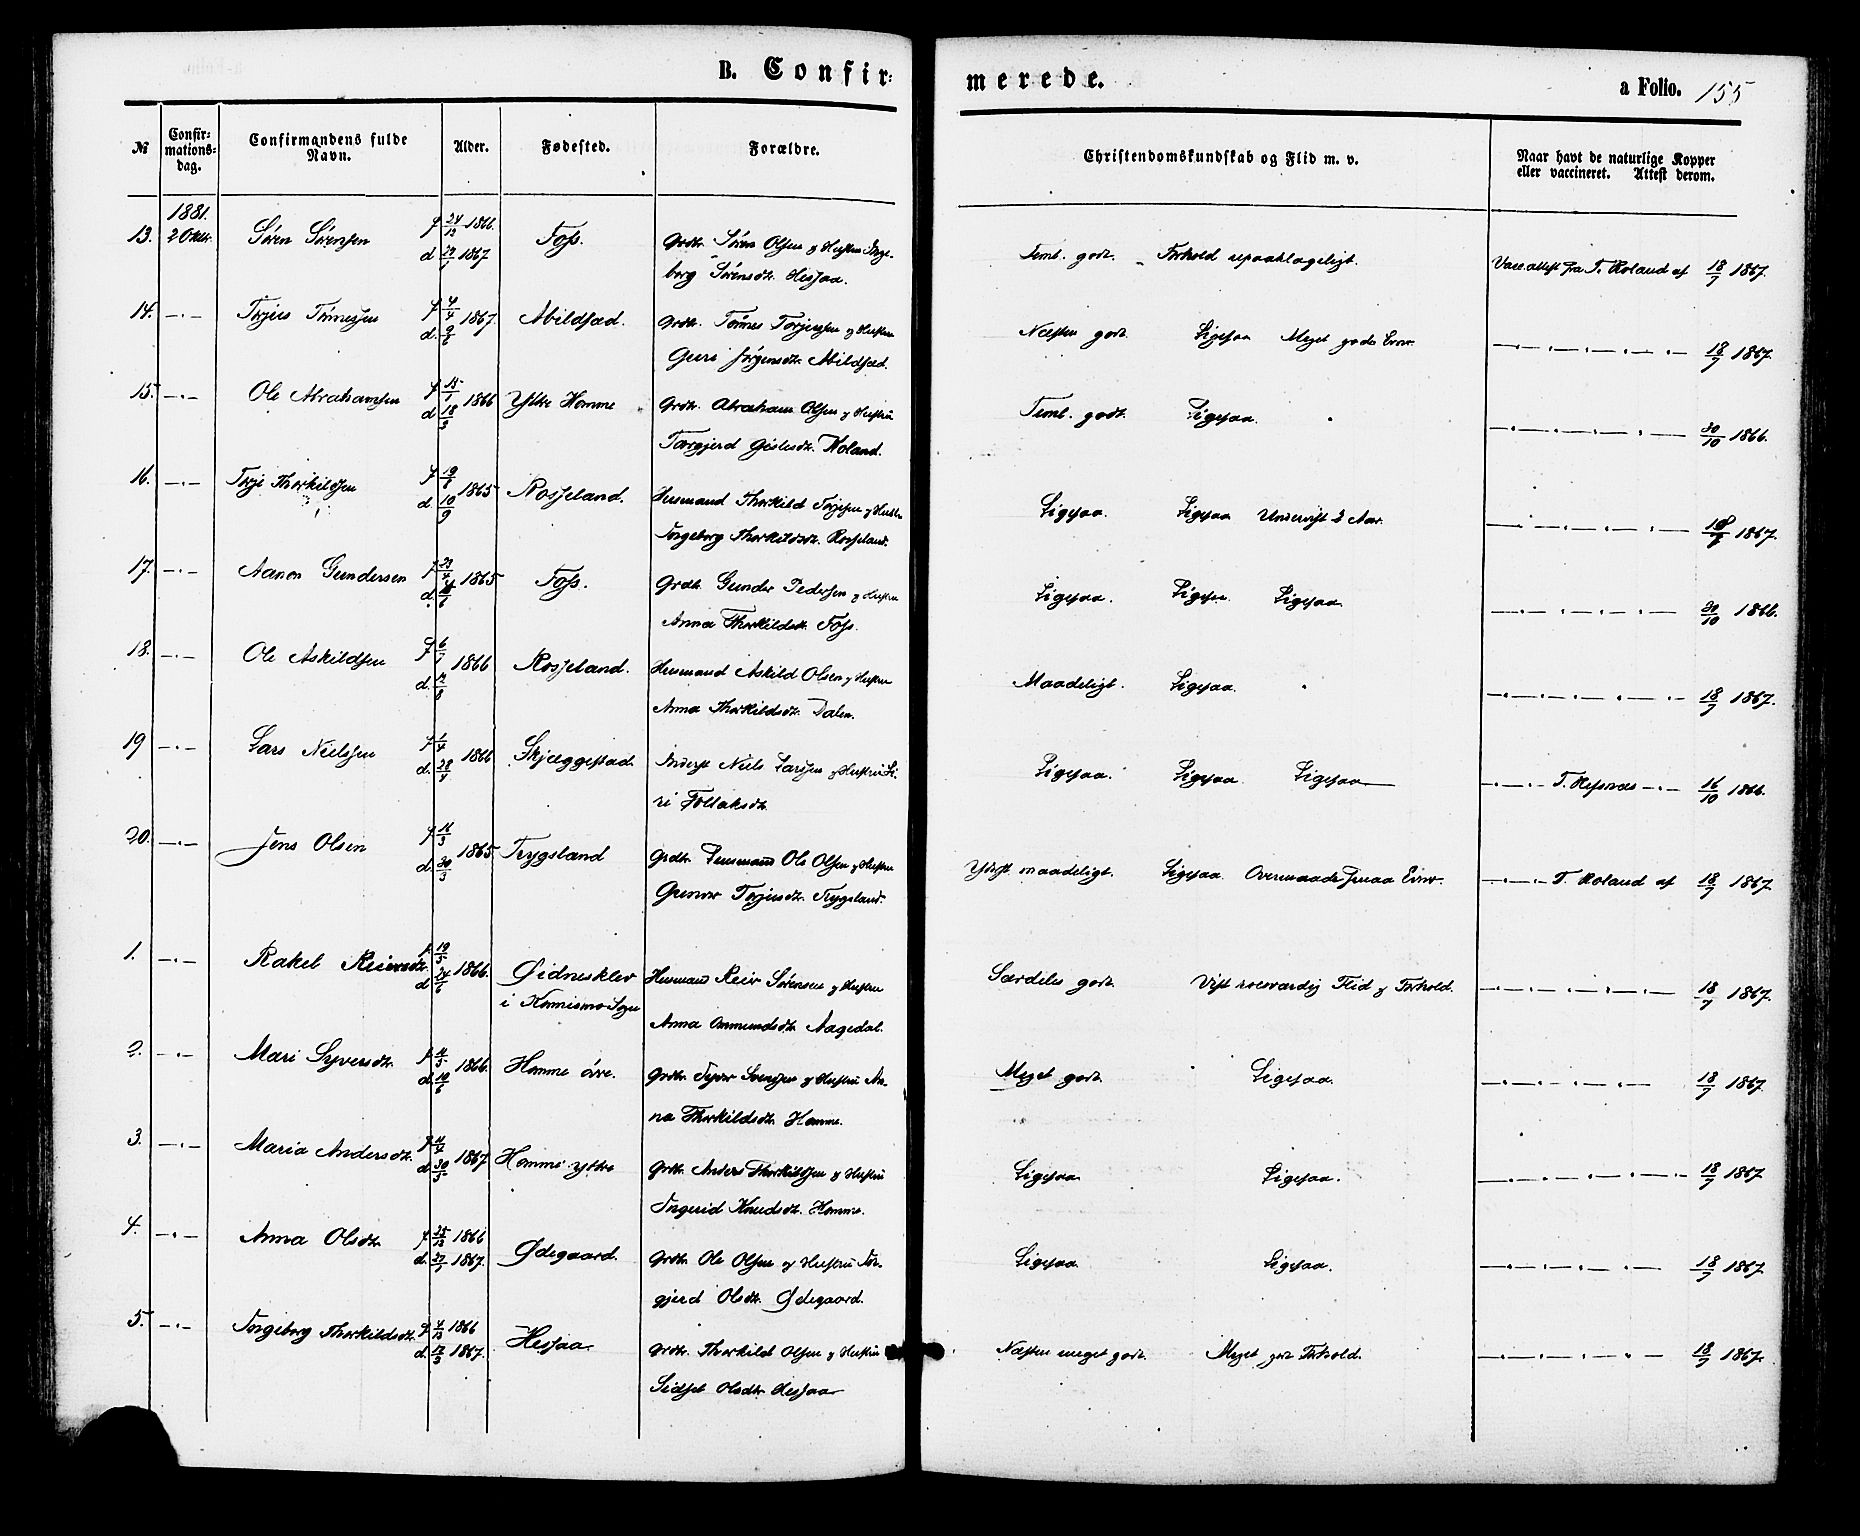 B. Confir-
merede.
a Folio. 155
№
Confir-
mations-
dag.
Confirmandens fulde
Navn.
Alder.
Fødested.
Forældre.
Christendomskundskab og Flid m. v.
Naar havt de naturlige Kopper
eller vaccineret. Attest derom.
1881.
13. 2 Oktbr. Søren Sørensen f 24/12 1866. Foss. Grdbr. Søren Olsen og Hustru Inge- Teml. godt. Forhold upaaklageligt. Vacc.attest fra T. Roland af 18/7 1867.
d 1867 borg Sørensdtr. Hessaa.
14. —"— Torjus Tønnessen f 4/4 1867. Abildsæd. Grdbr. Tønnes Torjussen og Hustru Næsten godt. Ligesaa Meget gode Evner. 18/7 1867.
d. 9/6 Guri Jørgensdtr. Abildsæd.
15. —"— Ole Abrahamsen f 15/1 1866 Ytre Homme Grdbr. Abraham Olsen og Hustru Teml. godt. Ligesaa. " 30/10 1866.
d 18/3 Torgjerd Gislesdtr. Roland.
16. —"— Terje Thorkildsen f 19/8 1865 Rosseland. Husmand Thorkild Terjesen og Hustru Ligesaa. Ligesaa Undervist 2 Aar. 18/7 1867.
d. 10/9 Ingeborg Thorkildsdtr. Rosseland.
17. —"— Aanon Gundersen f 23/4 1865 Foss. Grdbr. Gunder Pedersen og Hustru Ligesaa. Ligesaa Ligesaa 30/10 1866.
d. Anna Thorkildsdtr. Foss.
18. —"— Ole Askildsen f 6/7 1866 Rosseland. Husmand Askild Olsen og Hustru Maadeligt. Ligesaa. " 18/7 1867.
d. 12/8 Anna Thorkildsdtr. Dalen.
19 —"— Lars Nielssen f 1/4 1866 Skjæggestad. Inderst Niels Larssen og Hustru Si- Ligesaa. Ligesaa Ligesaa T. Refsnæs 16/10 1866.
d. 28/4 ri Follaksdtr.
20. —"— Jens Olsen f 11/3 1865. Trygsland Grdbr. Ole Olsen og Hustru Yderst maadeligt. Ligesaa. Overmaade smaa Evner. T. Roland af 18/7 1867.
d. 30/3 Gunvor Torjusdtr. Trygsland.
1. —"— Rakel Reiersdtr. f 19/5 1866. Øidnesklev Husmand Reier Sørensen og Hustru Særdeles godt. Vist rosværdig Flid og Forhold. 18/7 1867.
d 24/6 i Konnismo Sogn Anna Ommundsdtr. Aagedal.
2. —"— Mari Syversdtr. f 11/5 1866. Homme øvre. Grdbr. Syver Svensen og Hustru An- Meget godt. Ligesaa. 18/7 1867.
d. 10/6 na Thorkildsdtr. Homme.
3. —"— Maria Andersdtr. f 11/4 1867 Homme ytre Grdbr. Anders Thorkildsen og Hustru Ligesaa Ligesaa. 18/7 1867
d. 30/5 Ingerid Knudsdtr. Homme.
4. —"— Anna Olsdtr. f 25/12 1866 Ødegaard. Grdbr. Ole Olsen og Hustru Tor- Ligesaa. Ligesaa. 18/7 1867.
d. 27/1 1867. gjerd Olsdtr. Ødegaard.
5. —"— Ingeborg Thorkildsdtr. f 4/12 1866 Hessaa Grdbr. Thorkild Olsen og Hustru Næsten meget godt. Meget godt Forhold. 18/7 1867.
d. 17/3 1867. Sidsel Olsdtr. Hessaa